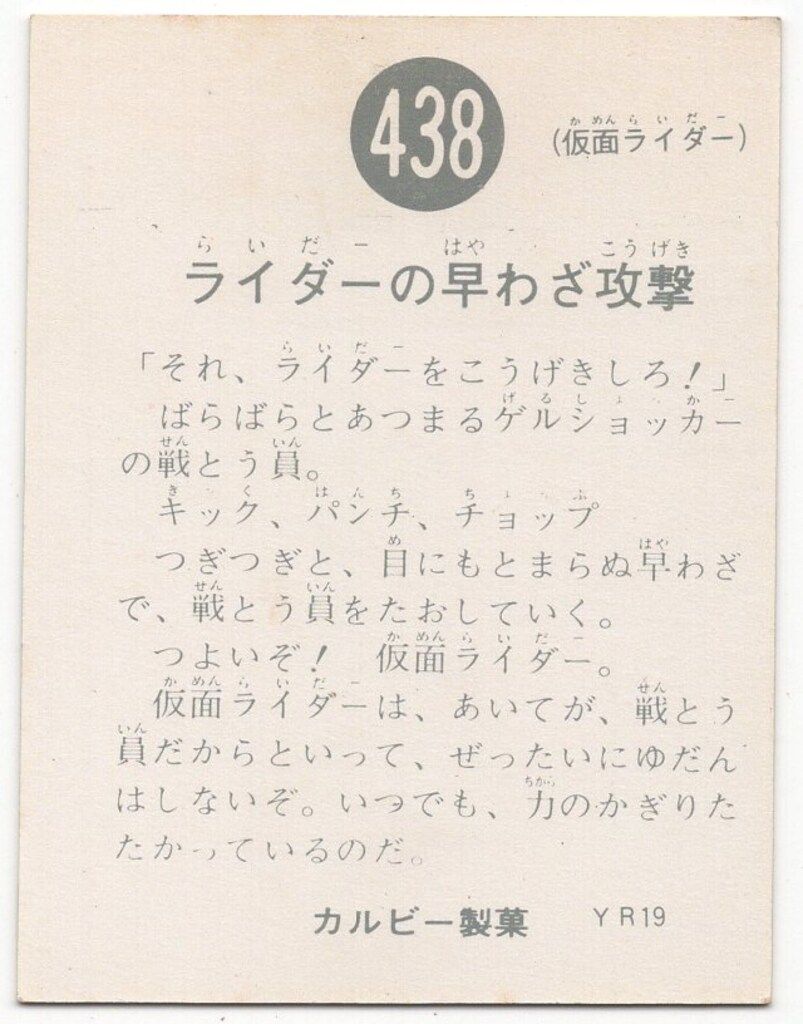 438
(仮面ライダー)
ライダーの早わざ攻撃
「それ、ライダーをこうげきしろ！」
ばらばらとあつまるゲルショッカー
の戦とう員。
キック、パンチ、チョップ
つぎつぎと、目にもとまらぬ早わざ
で、戦とう員をたおしていく。
つよいぞ！　仮面ライダー。
仮面ライダーは、あいてが、戦とう
員だからといって、ぜったいにゆだん
はしないぞ。いつでも、力のかぎりた
たかっているのだ。
カルビー製菓 YR19